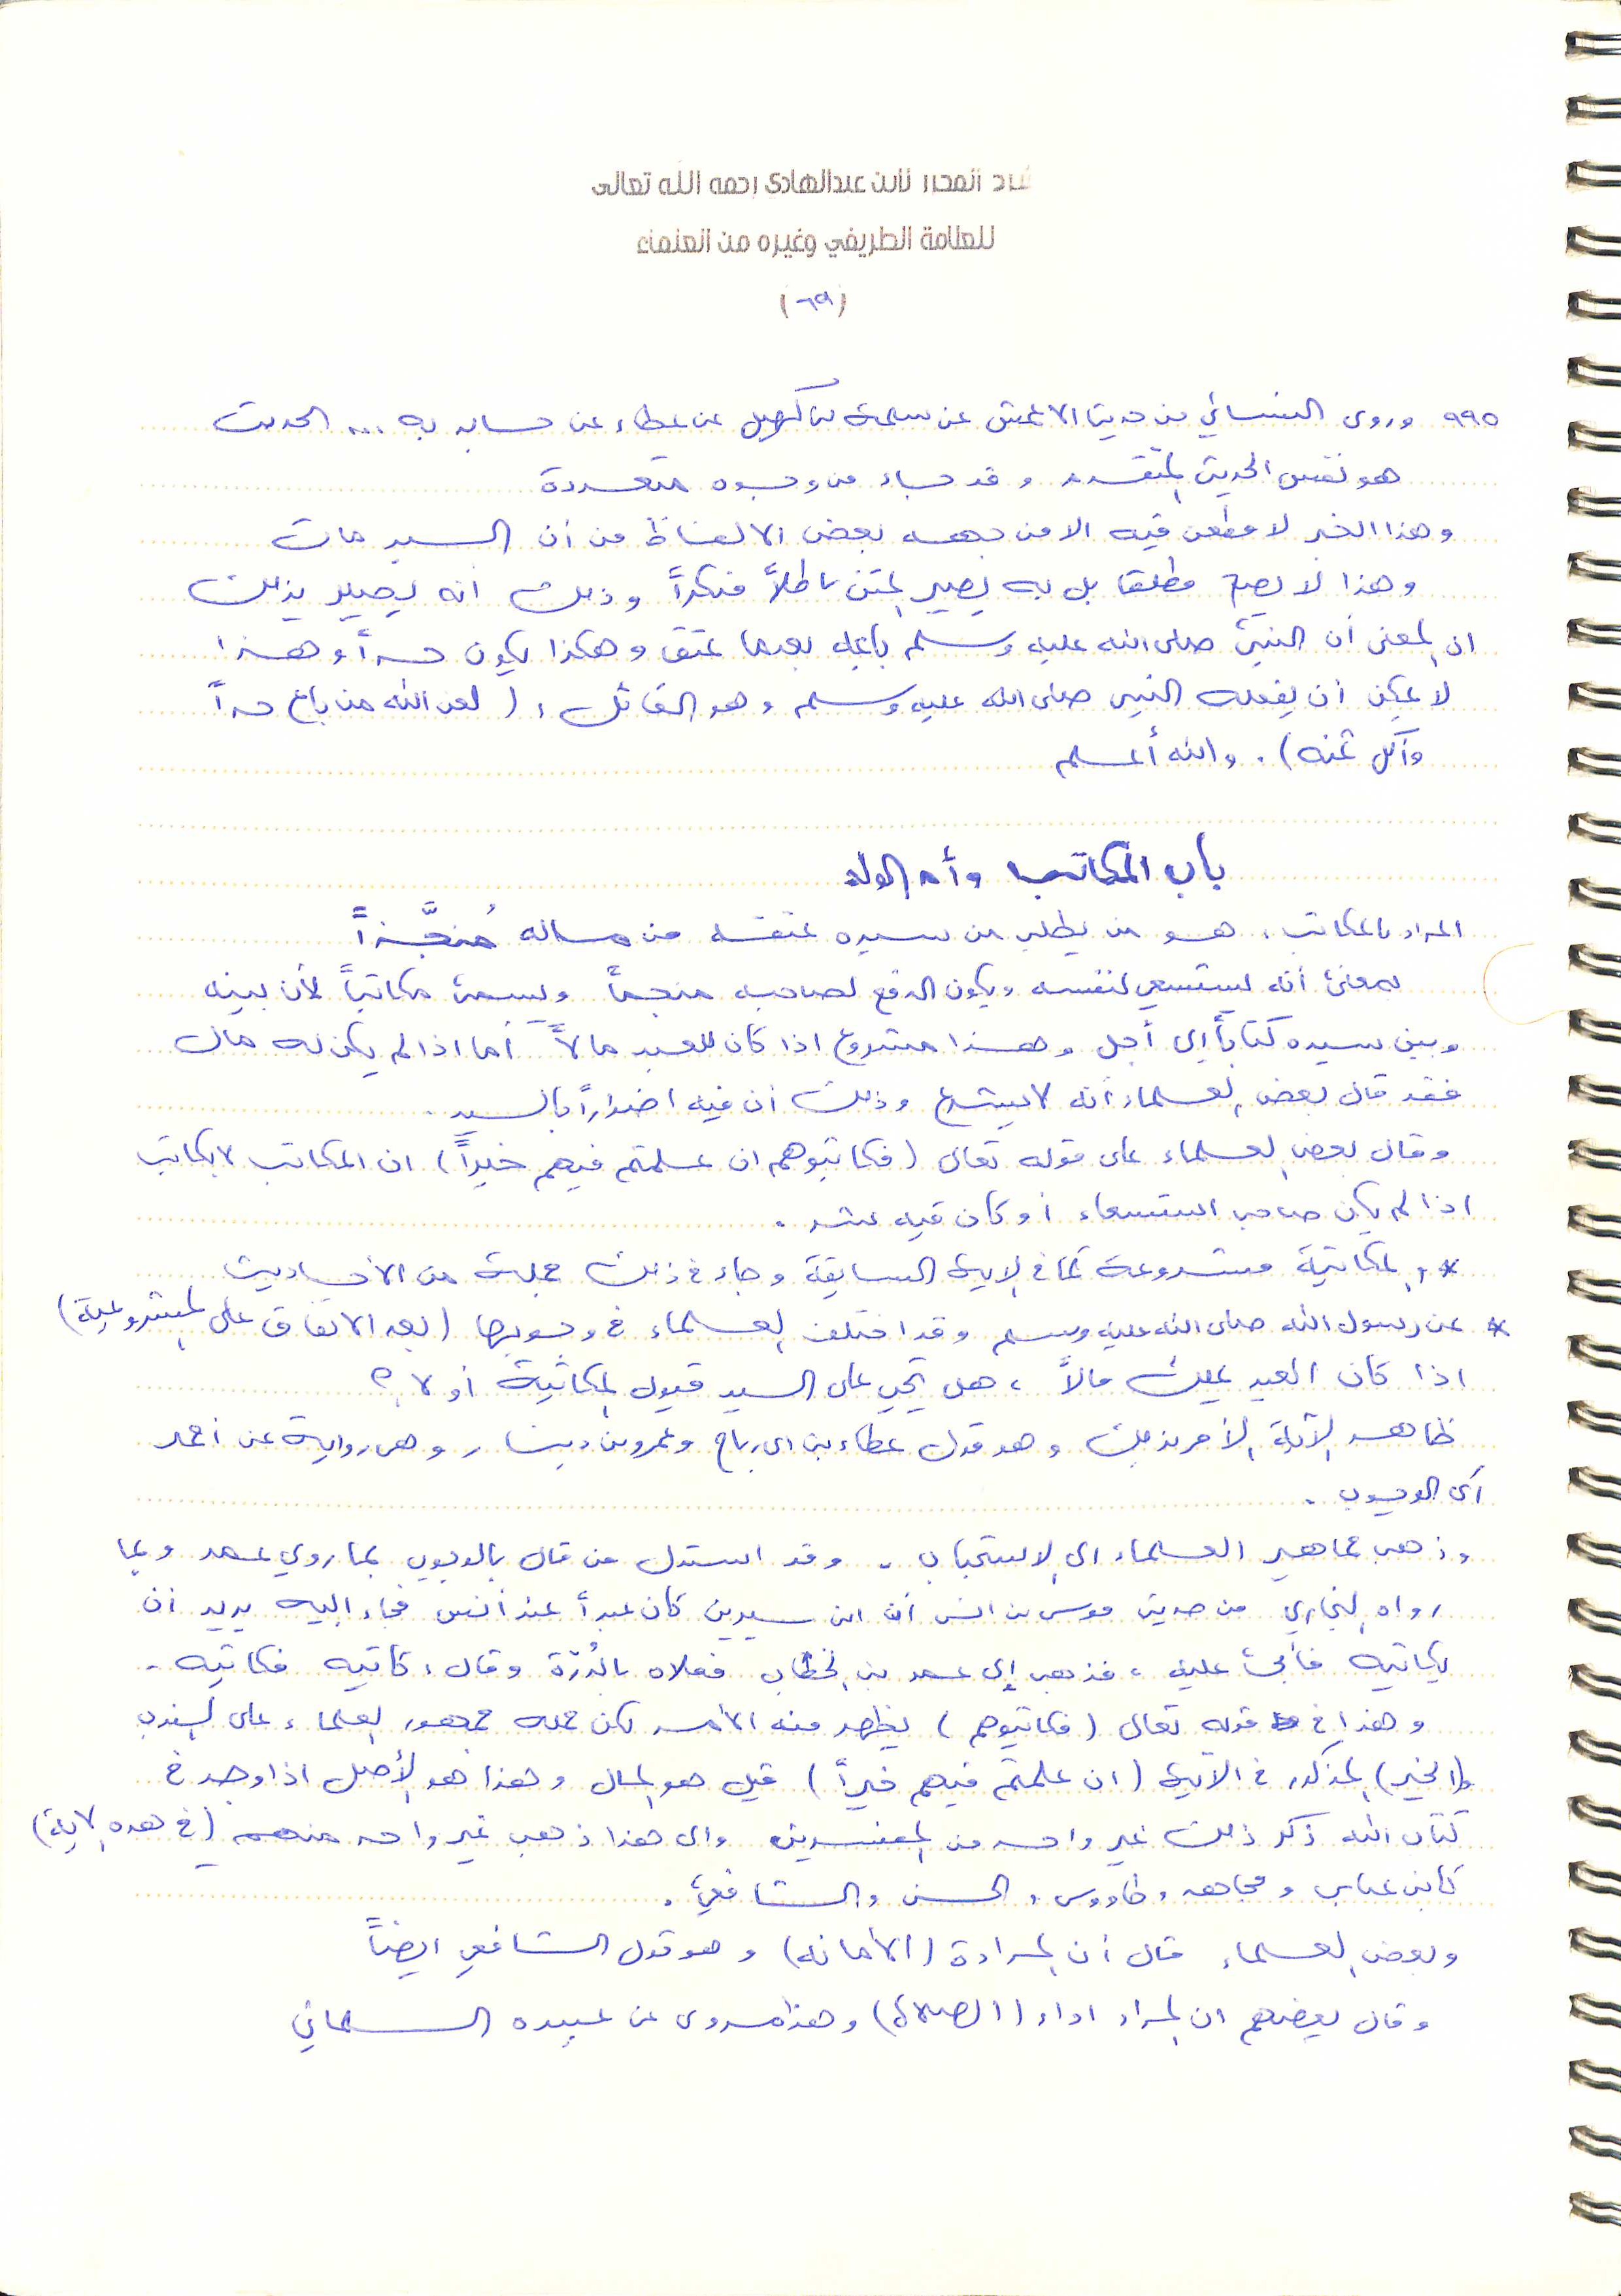 المحرر لابن عبدالهادي رحمه الله تعالى
للعلامة الطريفي وغيره من العلماء
(٦٩)
٩٩٥ وروى النسائي من حديث الاعمش عن سلمة بن كهيل عن عطاء عن جابر به ... الحديث
هو نفس الحديث المتقدم وقد جاء من وجوه متعددة
وهذا الخبر لا مطعن فيه الا من جهة بعض الالفاظ من أن السيد مات
وهذا لا يصح مطلقا بل به يصير المتن باطلاً منكراً وذلك انه يصير بذلك
ان المعنى أن النبي صلى الله عليه وسلم باعه بعدما عتق وهكذا يكون حراً وهذا
لا يمكن أن يفعله النبي صلى الله عليه وسلم وهو القائل : ( لعن الله من باع حراً
وأكل ثمنه ) . والله أعلم
باب المكاتب وأم الولد
المراد بالمكاتب : هو من يطلب من سيده عتقه من ماله مُنجَّزاً
بمعنى أنه يستسعي لنفسه ويكون الدفع لصاحبه منجماً ويسمى مكاتباً لأن بينه
وبين سيده كتاباً إلى أجل وهذا مشروع اذا كان للعبد مالاً أما اذا لم يكن له مال
فقد قال بعض العلماء أنه لا يشرع وذلك أن فيه اضراراً بالسيد .
وقال بعض العلماء على قوله تعالى ( فكاتبوهم ان علمتم فيهم خيراً ) ان المكاتب لا يكاتب
اذا لم يكن صاحب استسعاء أو كان فيه شر .
* والمكاتبة مشروعة كما في الآية السابقة وجاء في ذلك جملة من الأحاديث
* عن رسول الله صلى الله عليه وسلم وقد اختلف العلماء في وجوبها ( بعد الاتفاق على المشروعية )
اذا كان العبد يملك مالاً ، هل يجب على السيد قبول المكاتبة أو لا ؟
ظاهر الآية الأمر بذلك وهو قول عطاء بن ابي رباح وعمرو بن دينار وهي رواية عن أحمد
أي الوجوب .
وذهب جماهير العلماء الى الاستحباب . وقد استدل من قال بالوجوب بما روي عن عمر وبما
رواه البخاري من حديث موسى بن انس أن ابن سيرين كان عبداً عند أنس فجاء اليه يريد أن
يكاتبه فأبى عليه ، فذهب إلى عمر بن الخطاب فعلاه بالدُرّة وقال : كاتبه فكاتبه .
وهذا في قوله تعالى ( فكاتبوهم ) يظهر منه الأمر لكن حمله جمهور العلماء على الندب
و(الخير) المذكور في الآية ( ان علمتم فيهم خيراً ) قيل هو المال وهذا هو الأصل اذا وجد في
كتاب الله ذكر ذلك غير واحد من المفسرين والى هذا ذهب غير واحد منهم ( في هذه الآية )
كابن عباس ومجاهد وطاووس والحسن والشافعي .
وبعض العلماء قال أن المراد (الأمانه) وهو قول الشافعي ايضاً
وقال بعضهم ان المراد اداء (الصلاة) وهذا مروى عن عبيده السلماني